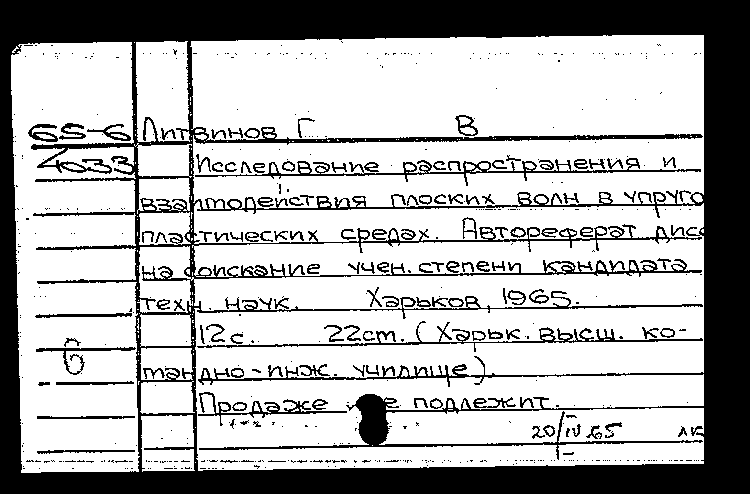 65-6 Литвинов, Г В
4033 Исследование распространения и
взаимодействия плоских волн в упруго
пластических средах. Автореферат дисс
на соискание учен. степени кандидата
техн. наук. Харьков, 1965.
12с. 22cm. (Харьк. высш. ко-
6
мандно-инж. училище).
Продаже не подлежит.
20/IV 65 ЛК